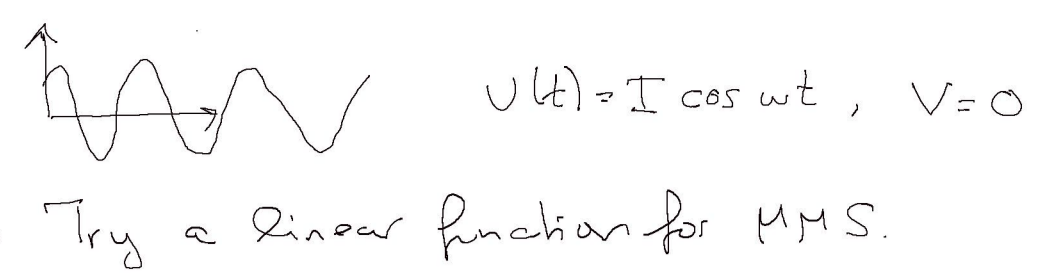 U(t) = I cos ωt , V = 0
Try a linear function for MMS.